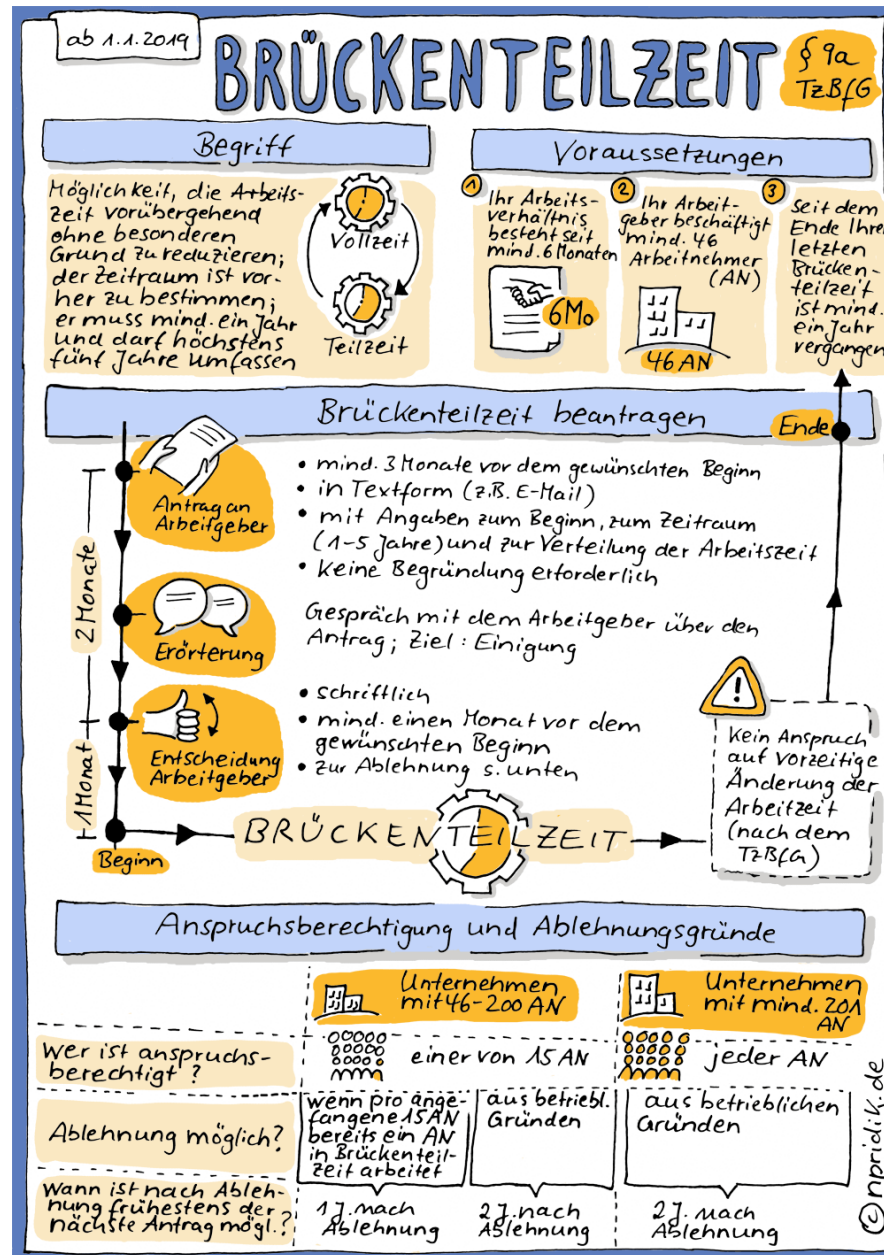 ab 1.1.2019
BRÜCKENTEILZEIT
§ 9a
TzBfG
Begriff
Möglichkeit, die Arbeits-
zeit vorübergehend
ohne besonderen
Grund zu reduzieren;
der Zeitraum ist vor-
her zu bestimmen;
er muss mind. ein Jahr
und darf höchstens
fünf Jahre umfassen
Vollzeit
Teilzeit
Voraussetzungen
1
Ihr Arbeits-
verhältnis
besteht seit
mind. 6 Monaten
6Mo
2
Ihr Arbeit-
geber beschäftigt
mind. 46
Arbeitnehmer
(AN)
46 AN
3
Seit dem
Ende Ihrer
letzten
Brücken-
teilzeit
ist mind.
ein Jahr
vergangen
Brückenteilzeit beantragen
Ende
2 Monate
1 Monat
Antrag an
Arbeitgeber
• mind. 3 Monate vor dem gewünschten Beginn
• in Textform (z.B. E-Mail)
• mit Angaben zum Beginn, zum Zeitraum
(1-5 Jahre) und zur Verteilung der Arbeitszeit
• keine Begründung erforderlich
Erörterung
Gespräch mit dem Arbeitgeber über den
Antrag; Ziel: Einigung
Entscheidung
Arbeitgeber
• schriftlich
• mind. einen Monat vor dem
gewünschten Beginn
• zur Ablehnung s. unten
Beginn
BRÜCKENTEILZEIT
!
Kein Anspruch
auf vorzeitige
Änderung der
Arbeitzeit
(nach dem
TzBfG)
Anspruchsberechtigung und Ablehnungsgründe
Unternehmen
mit 46-200 AN
Unternehmen
mit mind. 201
AN
Wer ist anspruchs-
berechtigt?
einer von 15 AN
jeder AN
Ablehnung möglich?
wenn pro ange-
fangene 15 AN
bereits ein AN
in Brückenteil-
zeit arbeitet
aus betriebl.
Gründen
aus betrieblichen
Gründen
Wann ist nach Ableh-
nung frühestens der
nächste Antrag mögl.?
1 J. nach
Ablehnung
2 J. nach
Ablehnung
2 J. nach
Ablehnung
©npridik.de